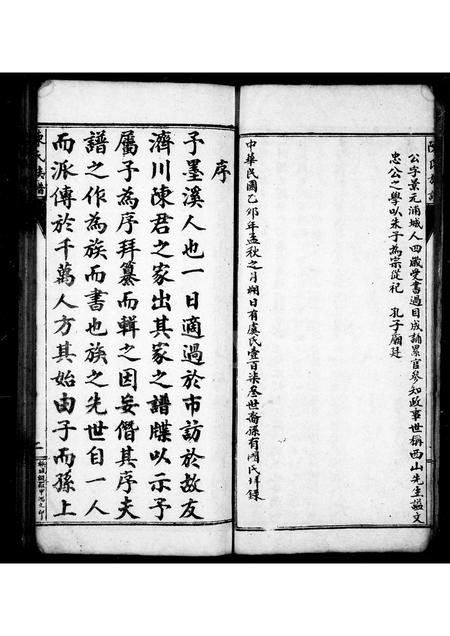 公字景元浦城人四歲受書過目成誦累官參知政事世稱西山先生謚文
忠公之學以朱子為宗從祀 孔子廟廷
中華民國乙卯年孟秋之月朔日有虞氏壹百柒叁世裔孫有鴻氏拜錄
序
予墨溪人也一日適過於市訪於故友
濟川陳君之家出其家之譜牒以示予
屬予為序拜纂而輯之因妄僭其序夫
譜之作為族而書也族之先世自一人
而派傳於千萬人方其始由子而孫上
陳氏族譜
二